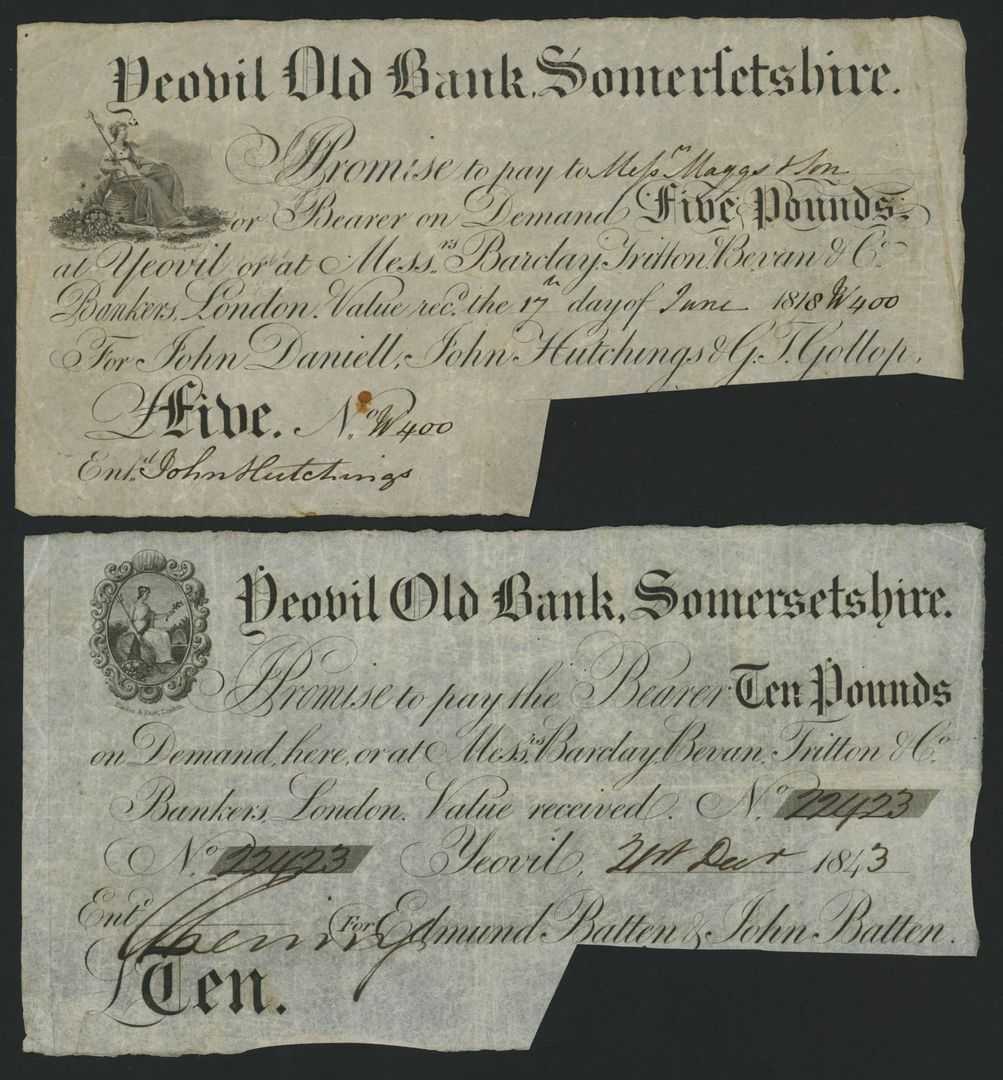 Yeovil Old Bank, Somerſetshire.
I Promise to pay to Meſsrs Maggs & Son
or Bearer on Demand Five Pounds
at Yeovil or at Messrs. Barclay, Tritton, Bevan & Co.
Bankers, London. Value recd. the 17th day of June 1818 W400
For John Daniell, John Hutchings & G. T. Gollop.
£ Five. No. W400
Entd. John Hutchings
Yeovil Old Bank, Somersetshire.
I Promise to pay the Bearer Ten Pounds
on Demand, here, or at Messrs. Barclay, Bevan, Tritton & Co.
Bankers, London. Value received. No. 22423
No. 22423 Yeovil, 21st Decr 1843
Entd. For Edmund Batten & John Batten.
£ Ten.